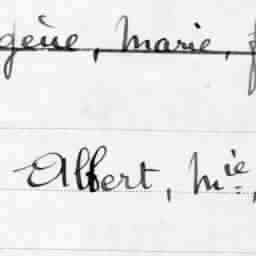 gène, marie,
Albert, mie,